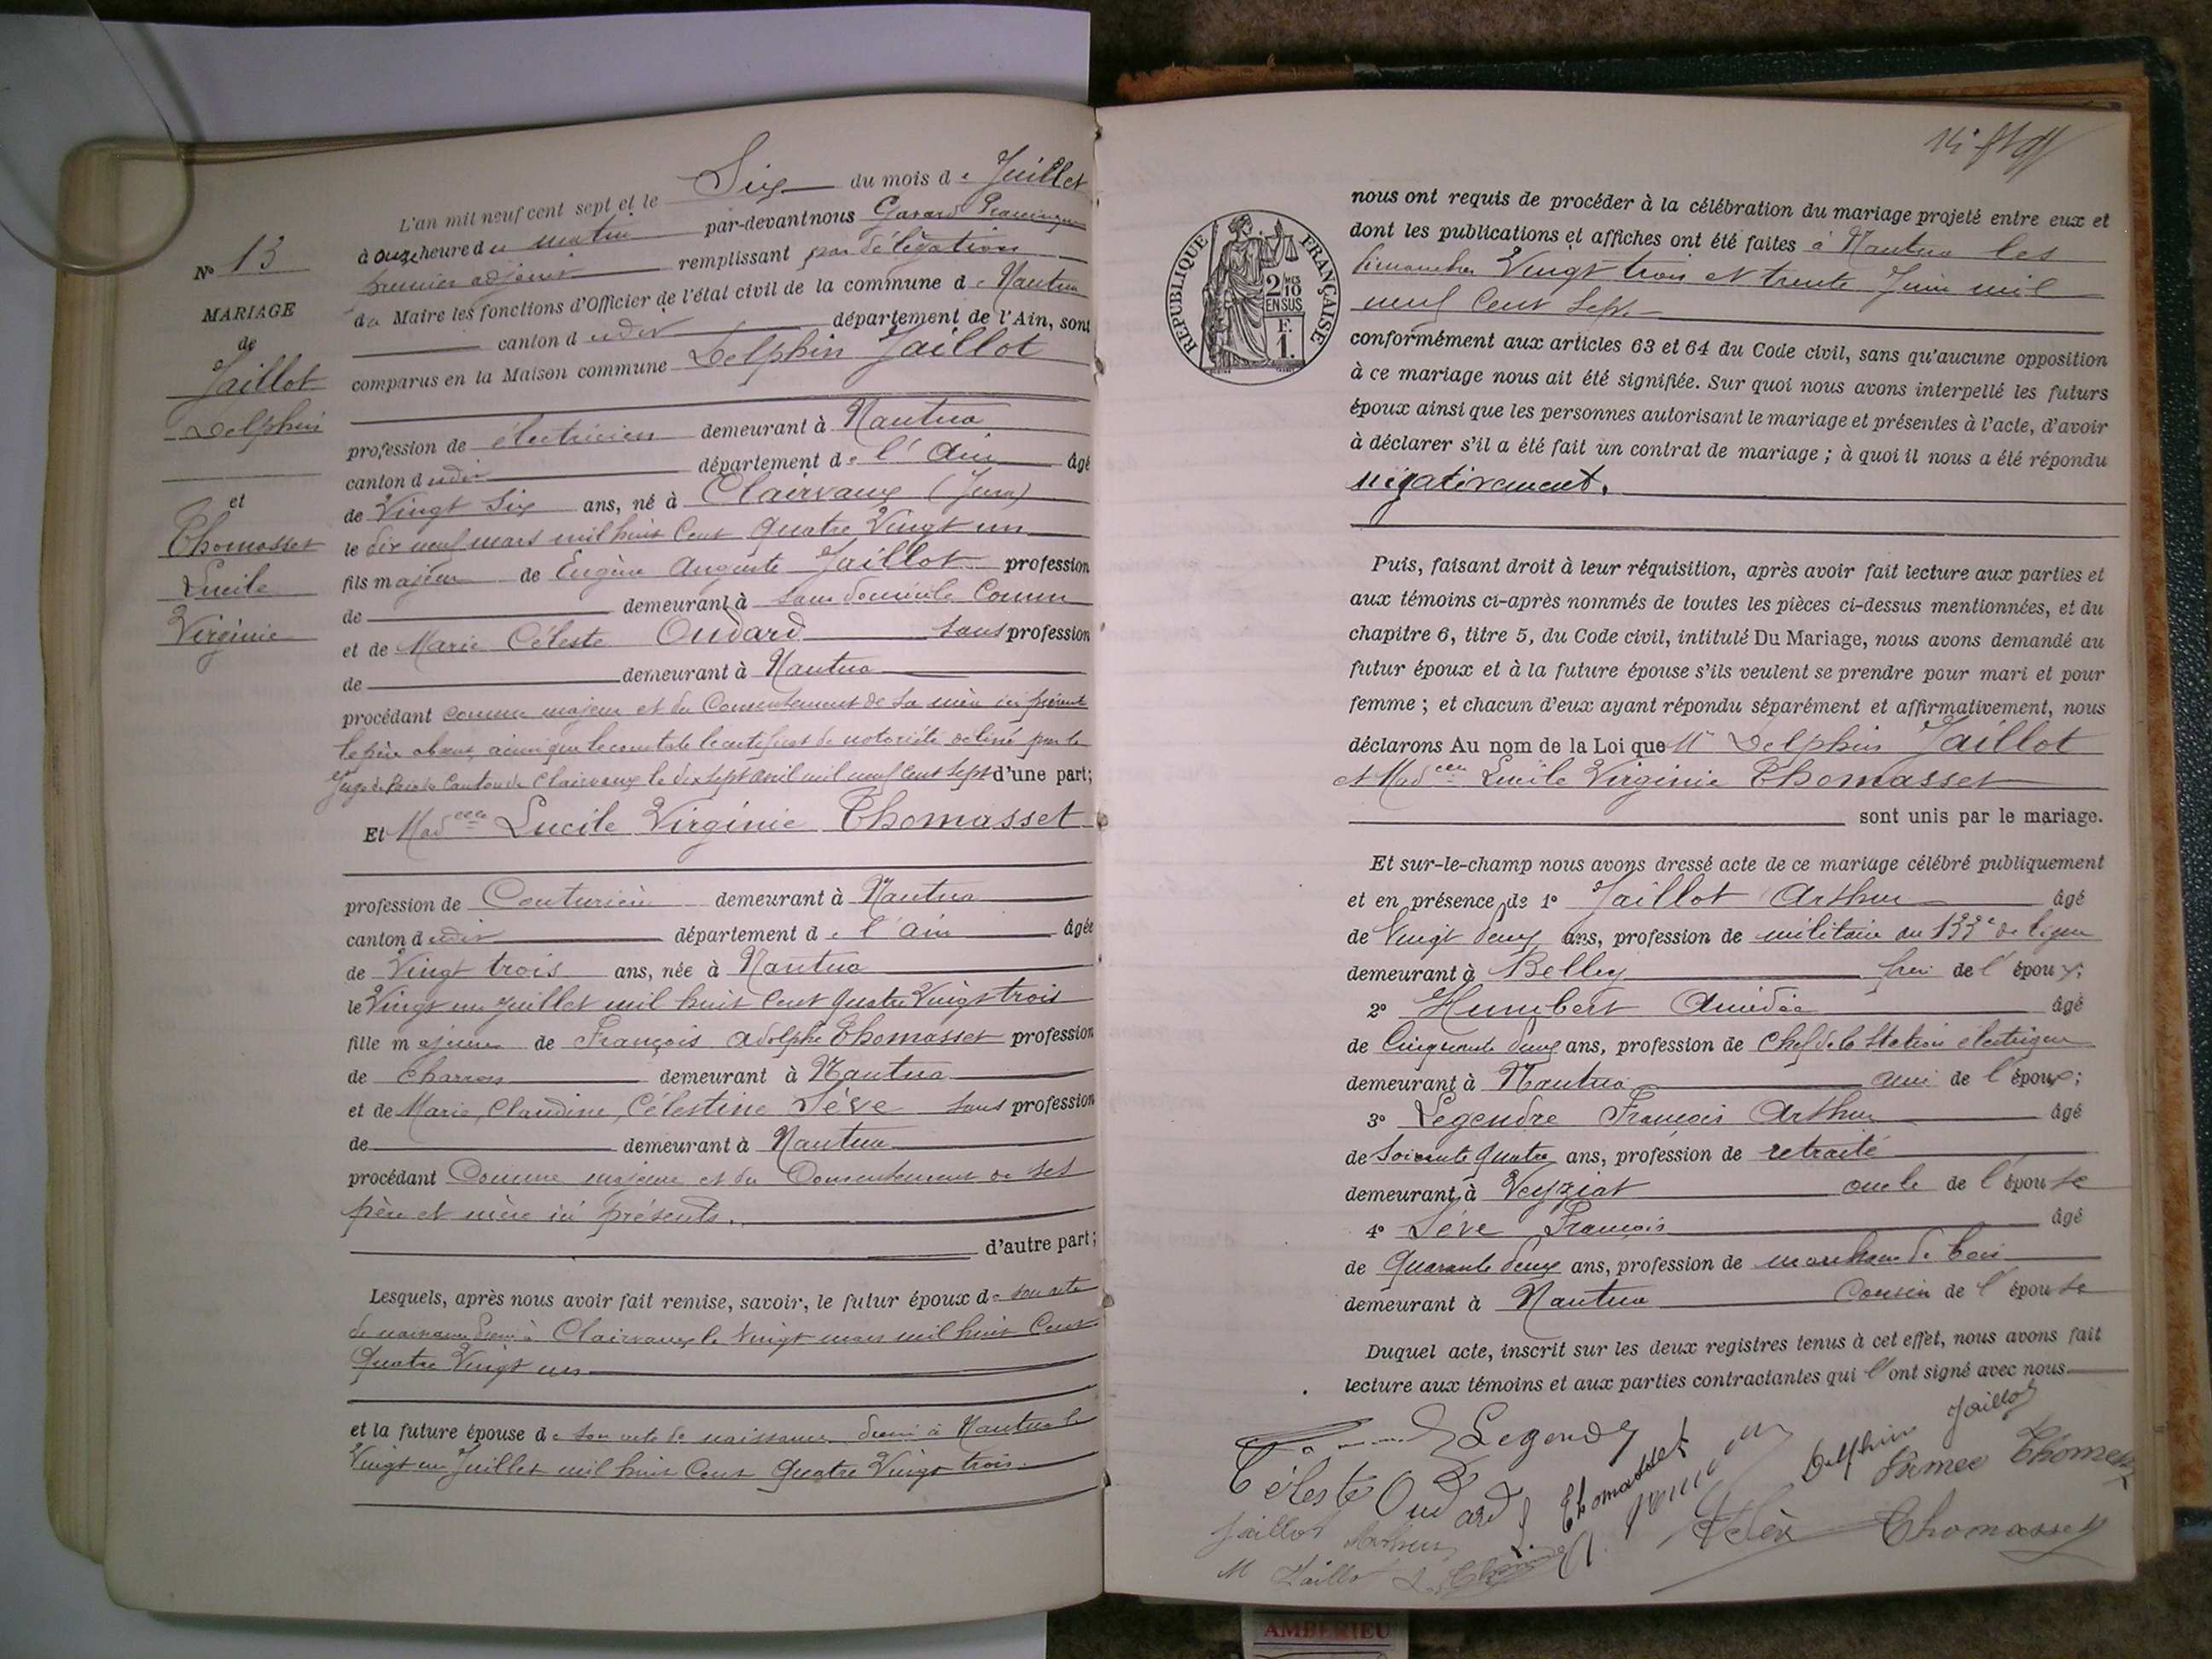 Nº 13
MARIAGE
de
Jaillot
Delphin
et
Thomasset
Lucile
Virginie
L'an mil neuf cent sept et le Six du mois de Juillet
à onze heure du matin par-devant nous Gavard
premier adjoint remplissant par délégation
du Maire les fonctions d'Officier de l'état civil de la commune de Nantua
canton dudit département de l'Ain, sont
comparus en la Maison commune Delphin Jaillot
profession de électricien demeurant à Nantua
canton dudit département de l'Ain âgé
de Vingt Six ans, né à Clairvaux (Jura)
le dix neuf mars mil huit Cent Quatre Vingt un
fils majeur de Eugène Auguste Jaillot profession
de demeurant à sans domicile Connu
et de Marie Céleste Oudard sans profession
de demeurant à Nantua
procédant comme majeur et du Consentement de sa mère ici présente
le père absent, ainsi que le constate le certificat de notoriété délivré par le
Juge de Paix du Canton de Clairvaux le dix sept avril mil neuf Cent Sept d'une part;
Et Mad.elle Lucile Virginie Thomasset
profession de Couturière demeurant à Nantua
canton dudit département de l'Ain âgée
de Vingt trois ans, née à Nantua
le Vingt un Juillet mil huit Cent Quatre Vingt trois
fille majeure de François Adolphe Thomasset profession
de Charron demeurant à Nantua
et de Marie, Claudine, Célestine Sève sans profession
de demeurant à Nantua
procédant Comme majeure et du Consentement de ses
père et mère ici présents.
d'autre part;
Lesquels, après nous avoir fait remise, savoir, le futur époux de son acte
de naissance dressé à Clairvaux le Vingt mars mil huit Cent
Quatre Vingt un
et la future épouse de son acte de naissance dressé à Nantua le
Vingt un Juillet mil huit Cent Quatre Vingt trois.
RÉPUBLIQUE FRANÇAISE
2/10 MES
EN SUS
F.
1.
nous ont requis de procéder à la célébration du mariage projeté entre eux et
dont les publications et affiches ont été faites à Nantua les
dimanches Vingt trois et trente Juin mil
neuf Cent Sept.
conformément aux articles 63 et 64 du Code civil, sans qu'aucune opposition
à ce mariage nous ait été signifiée. Sur quoi nous avons interpellé les futurs
époux ainsi que les personnes autorisant le mariage et présentes à l'acte, d'avoir
à déclarer s'il a été fait un contrat de mariage ; à quoi il nous a été répondu
négativement.
Puis, faisant droit à leur réquisition, après avoir fait lecture aux parties et
aux témoins ci-après nommés de toutes les pièces ci-dessus mentionnées, et du
chapitre 6, titre 5, du Code civil, intitulé Du Mariage, nous avons demandé au
futur époux et à la future épouse s'ils veulent se prendre pour mari et pour
femme ; et chacun d'eux ayant répondu séparément et affirmativement, nous
déclarons Au nom de la Loi que Mr Delphin Jaillot
et Mad.elle Lucile Virginie Thomasset
sont unis par le mariage.
Et sur-le-champ nous avons dressé acte de ce mariage célébré publiquement
et en présence de 1º Jaillot Arthur âgé
de Vingt deux ans, profession de militaire au 133e de ligne
demeurant à Belley frère de l'époux;
2º Humbert Amédée âgé
de Cinquante deux ans, profession de Chef de la Station électrique
demeurant à Nantua ami de l'époux;
3º Legendre François Arthur âgé
de Soixante Quatre ans, profession de retraité
demeurant à Veyziat oncle de l'épouse
4º Sève François âgé
de Quarante deux ans, profession de marchand de bois
demeurant à Nantua Cousin de l'épouse
Duquel acte, inscrit sur les deux registres tenus à cet effet, nous avons fait
lecture aux témoins et aux parties contractantes qui l'ont signé avec nous
Legendre
Delphin Jaillot
Céleste Oudard
L Thomasset
Jaillot Arthur
Thomasset
M Jaillot
AMBERIEU